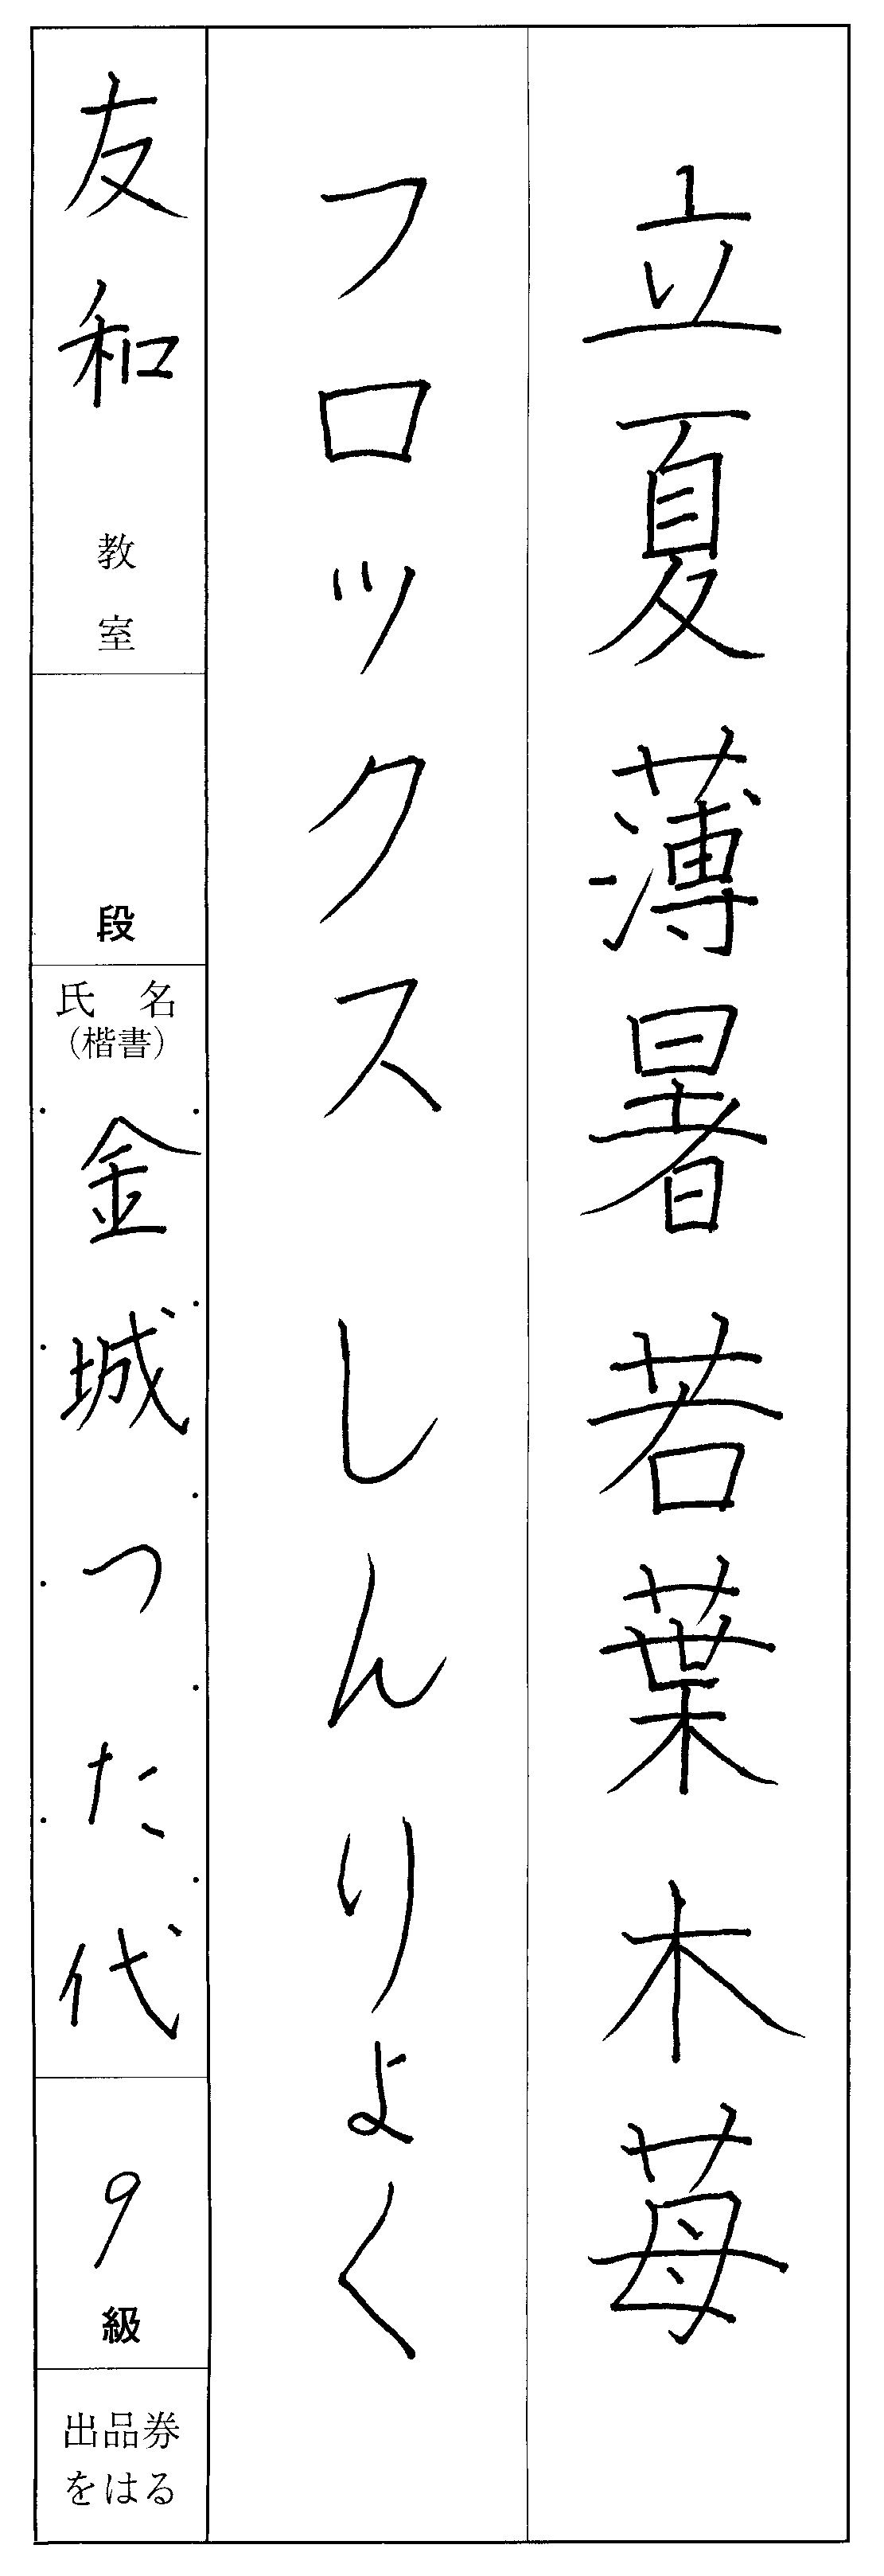 立夏薄暑若葉木苺
フロックスしんりよく
友和教室
段
氏名
（楷書）
金城つた代
9級
出品券
をはる